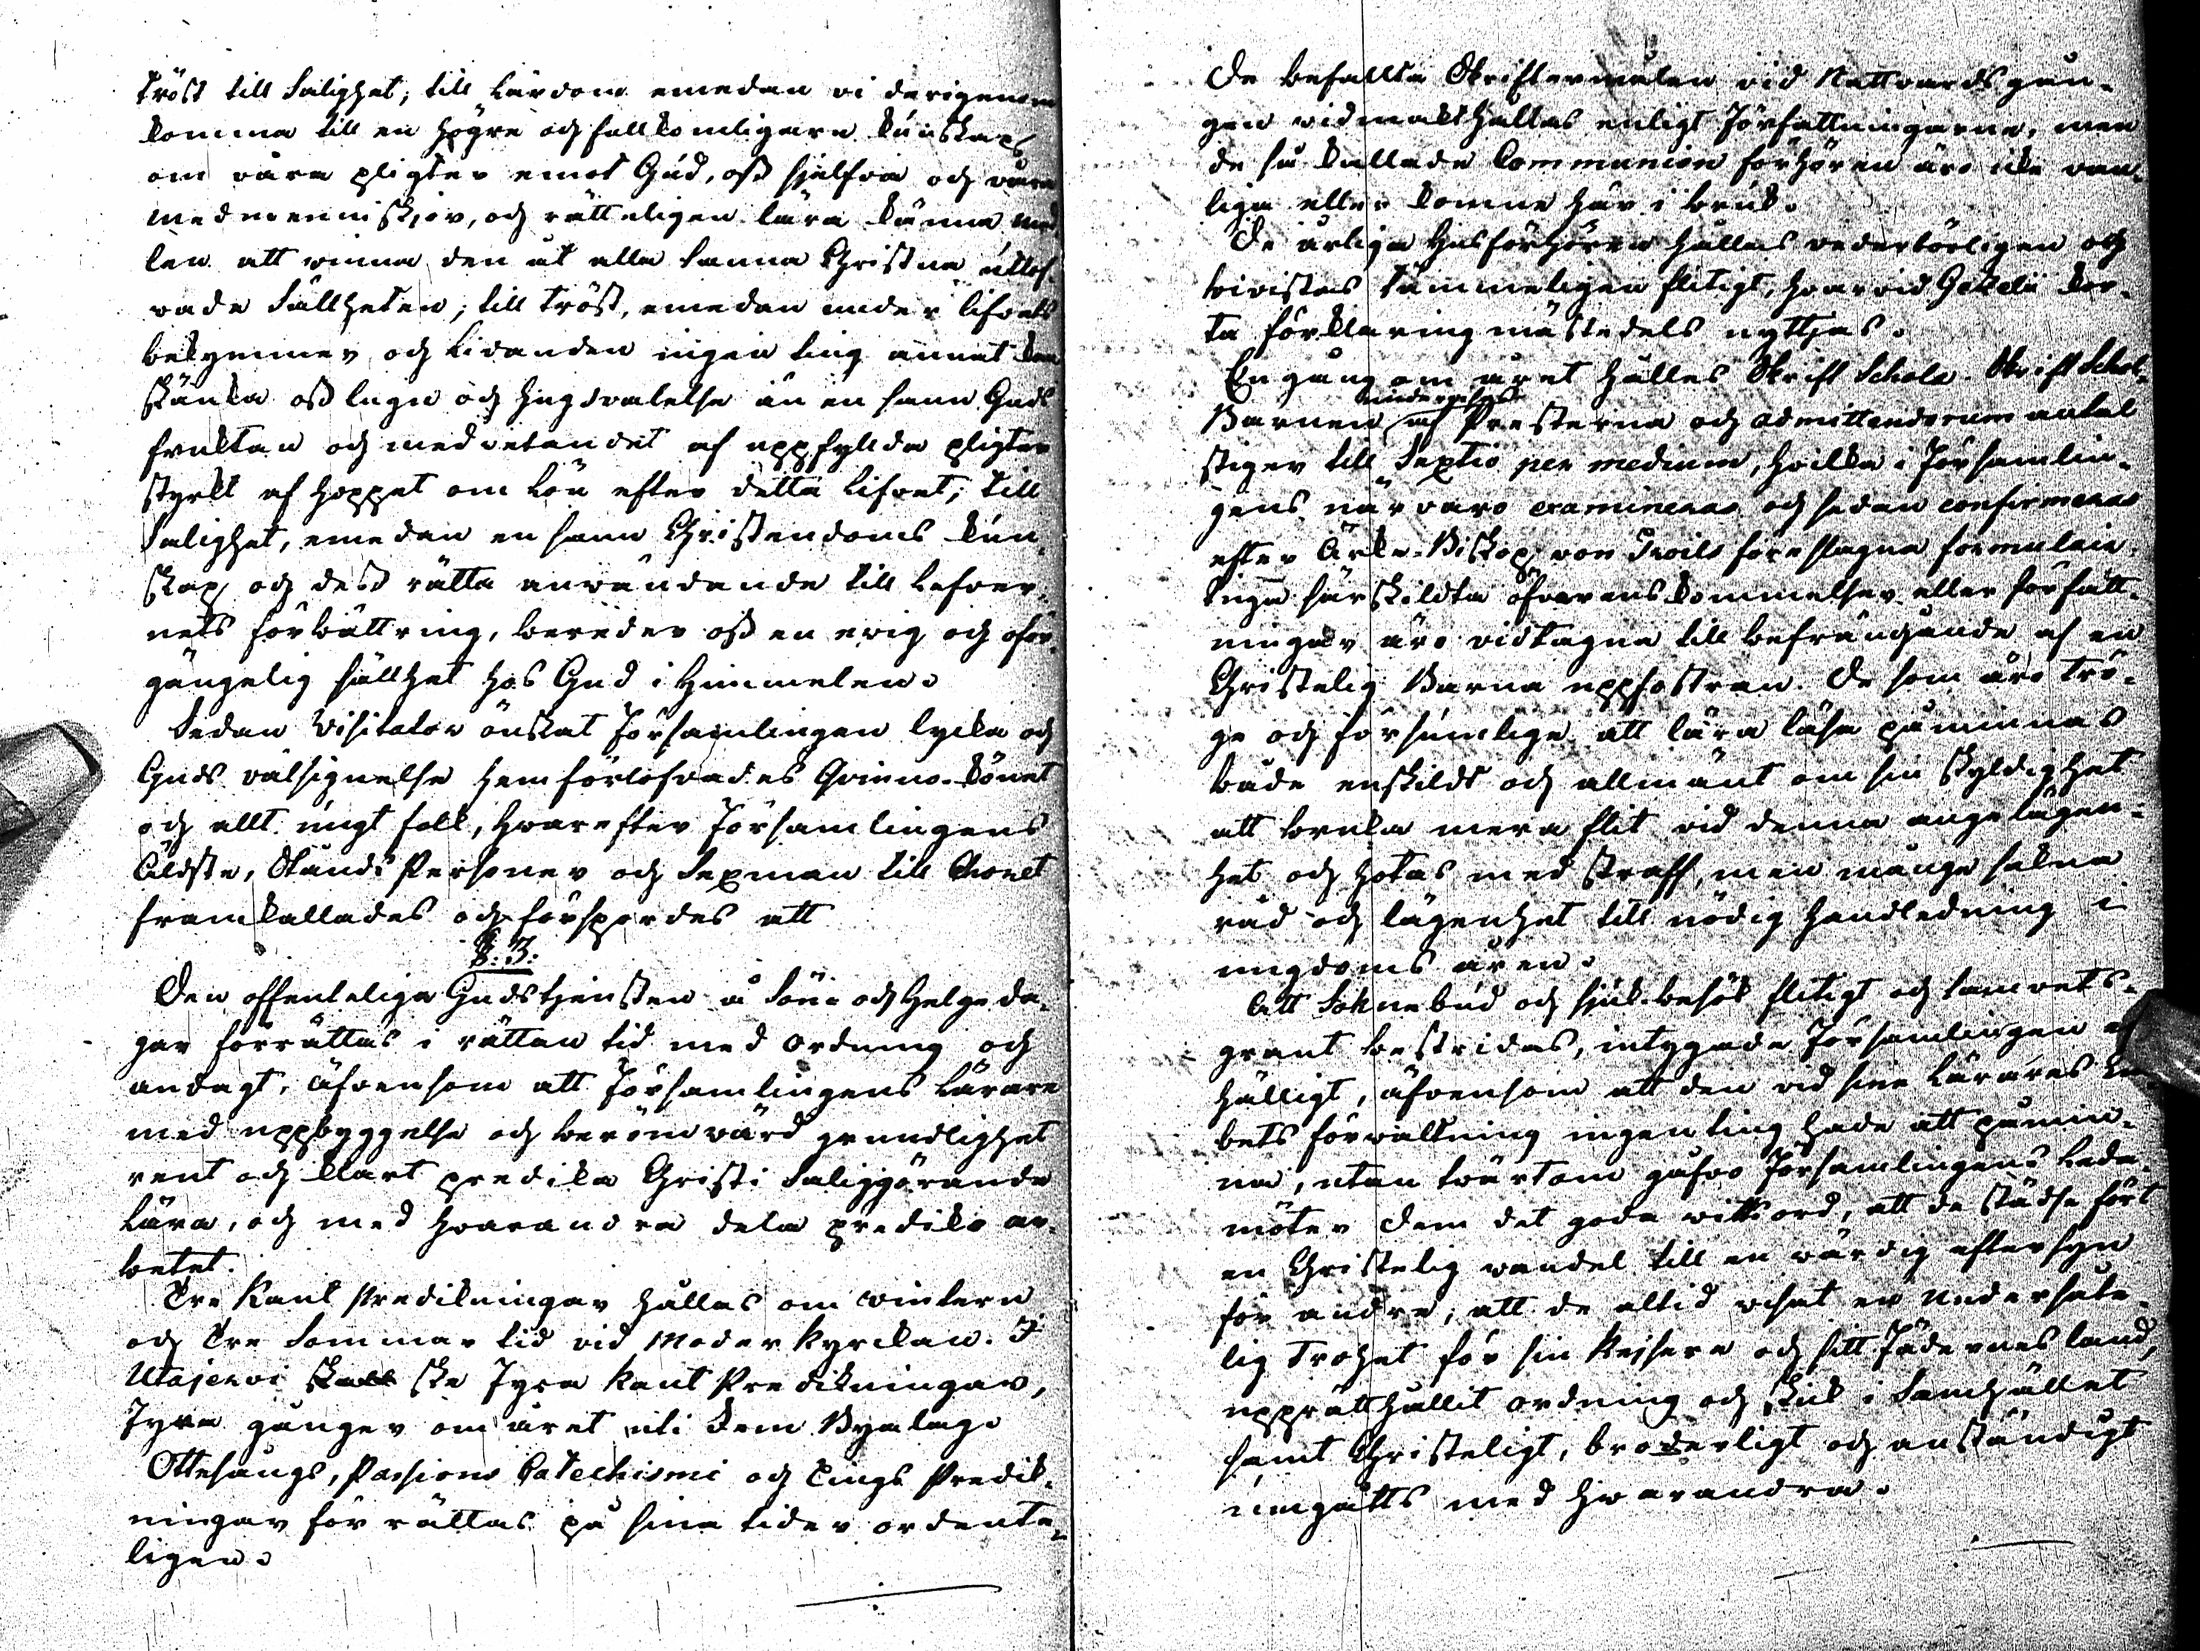 tröst till Salighet; till Lärdom emedan vi derigenom
komma till en högre och fullkomligare kunskap
om våra pligter emot Gud, oss sjelfva och våra
medmenniskjor, och rätteligen lära känna med
len att winna den åt alla sanna Christna utlof-
vade Sällheten; till tröst, emedan under lifvets
bekymmer och Lidanden ingen ting annat kan
skänka oss lugn och hugsvalelse än en sann Guds
fruktan och medvetandet af uppfyllda pligter
styrkt af hoppet om Lön efter detta Lifvet; till
Salighet, emedan en sann Christendoms kun-
skap och dess rätta anwändande till Lefver-
nets förbättring, bereder oss en ewig och oför-
gängelig sällhet hos Gud i Himmelen.
Sedan Visitator önskat Församlingen lycka och
Guds välsignelse hemförlofvades Qvinno-könet
och allt ungt folk, hvarefter Församlingens
Äldste, Stånds Personer och Sexmän till Choret
framkallades och försporders att
§. 3.
Den offenteliga Gudstjensten å Sön- och Helgeda-
gar förrättas i rättan tid med ordning och
andagt, äfvensom att Församlingens Lärare
med uppbyggelse och berömwärd grundlighet
rent och klart predika Christi Saliggörande
Lära, och med hvarandra dela prediko ar-
betet.
Tre Kant Predikningar hållas om wintern
och Tre Sommar tid vid Moder kyrkan. I
Utajervi ske Fyra Kant Predikningar,
Fyra gånger om året uti Byalag.
Ottesångs, Passions Catechismi och Tings Predik-
ningar förrättas på sina tider ordente-
ligen.
De befallta Skriftermålen vid Nattvardsgån-
gen vidmakthållas enligt Författningarne, men
de så kallade Communion förhören äro icke van-
liga eller komne här i bruk.
De årliga Husförhören hållas vederbörligen och
bivistas tämmeligen flitigt, hvarvid Gezelii kor-
ta förklaring mästedels nyttjas.
En gång om året hålles Skrift Schola. Skrift Schol-
undervisas
Barnen af Presterna och admittendorum antal
stiger till Sextio per medium, hvilka i Församlin-
gens närvaro examineras och sedan confirmeras
efter Ärke-Biskop von Troils föreslagna formulair.
Inga särskildta öfverenskommelser eller författ-
ningar äro vidtagna till befrämjande af en
Christelig Barna uppfostran. De som äro trö-
ge och försumlige att lära läsa påminnas
både enskildt och allmänt om sin skyldighet
att bruka mera flit vid denna angelägen-
het och hotas med straff, men många sakna
råd och lägenhet till nödig handledning i
ungdoms åren.
Att Sokne bud och sjuk-besök flitigt och samvets-
grant bestridas, intygade Församlingen en
hälligt, äfvensom att den vid sine Lärares Em
bets förwaltning ingenting hade att påmin-
na, utan twärtom gåfvo Församlingens Leda-
möter Dem det goda wittsord, att de städse fört
en Christelig wandel till en wärdig eftersyn
för andra; att de altid wisat en Undersåte-
lig Trohet för sin Kejsare och sitt Fädernesland,
upprätthållit ordning och skick i Samhället
samt Christeligt, broderligt och anständigt
umgåtts med hwarandra.